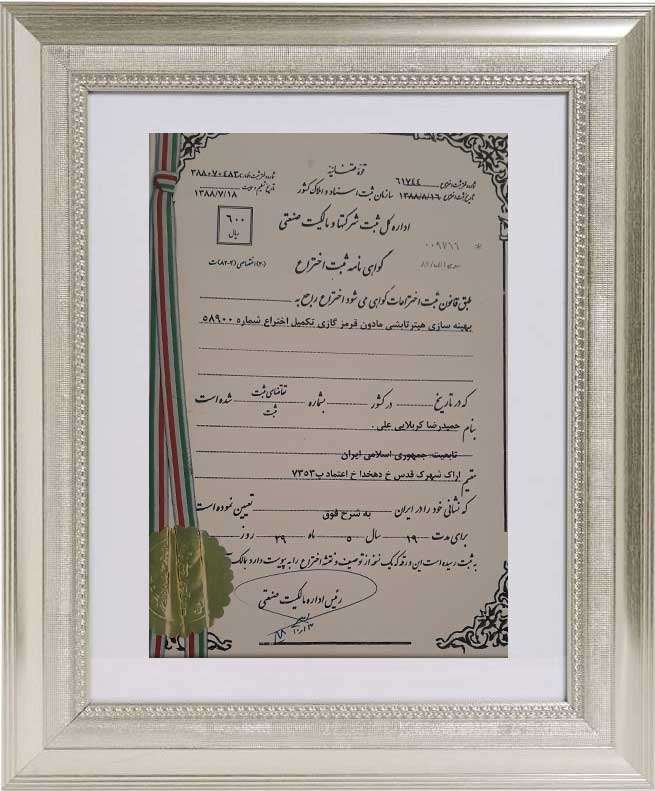 قوه قضائیه
شماره دفتر ثبت اختراع ۶۱۷۴۴
تاریخ ثبت اختراع ۱۳۸۸/۸/۱۶
سازمان ثبت اسناد و املاک کشور
۳۸۸۰۷۰۴۸۲
۱۳۸۸/۷/۱۸
اداره کل ثبت شرکتها و مالکیت صنعتی
۶۰۰
ریال
* ۰۰۹۷۶۶
گواهی نامه ثبت اختراع
طبق قانون ثبت اختراعات گواهی می شود اختراع راجع به
بهینه سازی هیترتابشی مادون قرمز گازی تکمیل اختراع شماره ۵۸۹۰۰
که در تاریخ در کشور بشماره تقاضای ثبت شده است
ثبت
بنام حمیدرضا کربلایی علی .
تابعیت: جمهوری اسلامی ایران
مقیم اراک شهرک قدس خ دهخدا خ اعتماد پ ۷۳۵۳
که نشانی خود را در ایران به شرح فوق تعیین نموده است
برای مدت ۱۹ سال ۵ ماه ۲۹ روز
به ثبت رسیده است این ورقه که یک نسخه از توصیف و نقشه اختراع را به پیوست دارد مالک
رئیس اداره مالکیت صنعتی